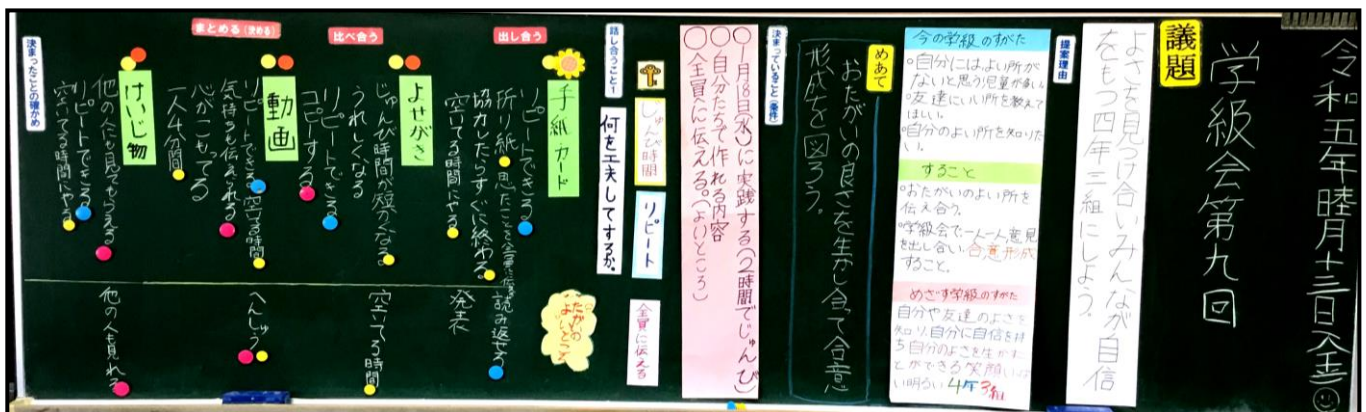 令和五年睦月十三日(金)
学級会第九回
議題
よさを見つけ合いみんなが自信
をもつ四年三組にしよう。
提案理由
今の学級のすがた
・自分にはよい所が
ないと思う児童が多い。
・友達にいい所を教えて
ほしい。
・自分のよい所を知りた
い。
すること
・おたがいのよい所を
伝え合う。
・学級会で一人一人意見
を出し合い、合意形成
すること。
めざす学級のすがた
自分や友達のよさを
知り、自分に自信を持
ち自分のよさを生かすこ
とができる笑顔いっぱ
い明るい4年3組
めあて
おたがいの良さを生かし合って合意
形成を図ろう。
決まっていること(条件)
〇一月18日(水)に実践する(2時間でじゅんび)
〇自分たちで作れる内容
〇全員へに伝える。(よいところ)
話し合うこと1
何を工夫してするか。
じゅんび時間
リピート
全員に伝える
出し合う
手紙カード
リピートできる
折り紙
協力したらすぐに終わる
空いてる時間にやる
読み返せる
発表
比べ合う
よせがき
じゅんび時間が短かくなる。
うれしくなる
リピートできる
コピーする
空いてる時間
まとめる(決める)
動画
リピートできる。空いてる時間
気持ちも伝えられる
心がこもってる
一人4分間
へんしゅう
けいじ物
他の人にも見てもらえる
リピートできる
空いてる時間にやる
他の人も見れる
決まったことの確かめ